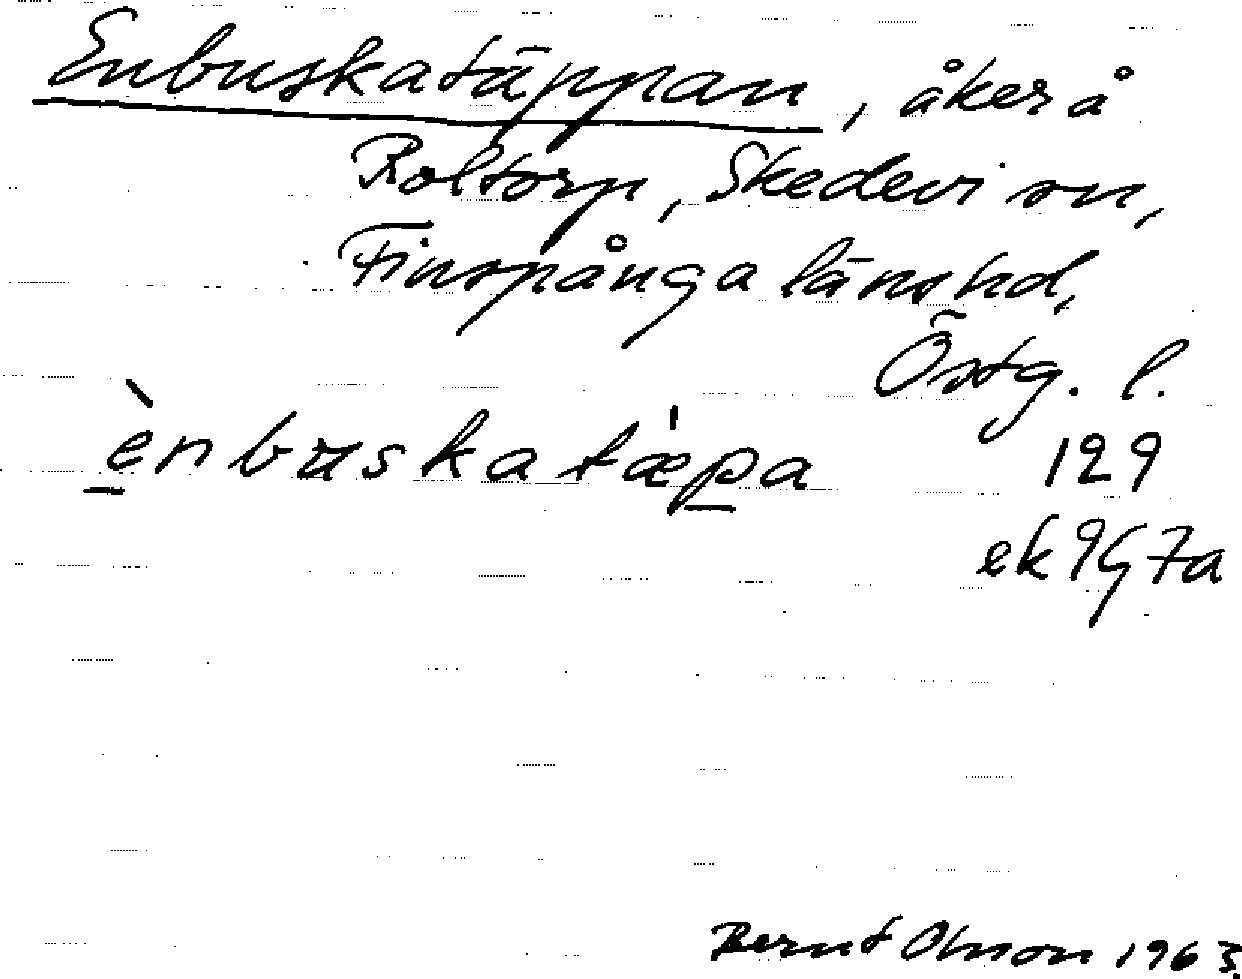 Enbuskatäppan, åker å
Roltorp, Skedevi sn,
Finspånga länshd,
Östg. l.
ènbuskatæ̍pa 129
ek 9G7a
Bernt Olsson 1963